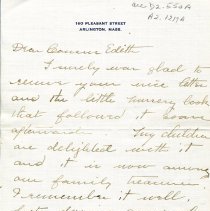 acc D2.550A
A2.1317A
160 PLEASANT STREET
ARLINGTON, MASS.
Dear Cousin Edith
I surely was glad to
receive your nice letter
and the little nursery book
that followed it soon
afterward. My children
are delighted with it
and it is now among
our family treasures.
I remember it well,